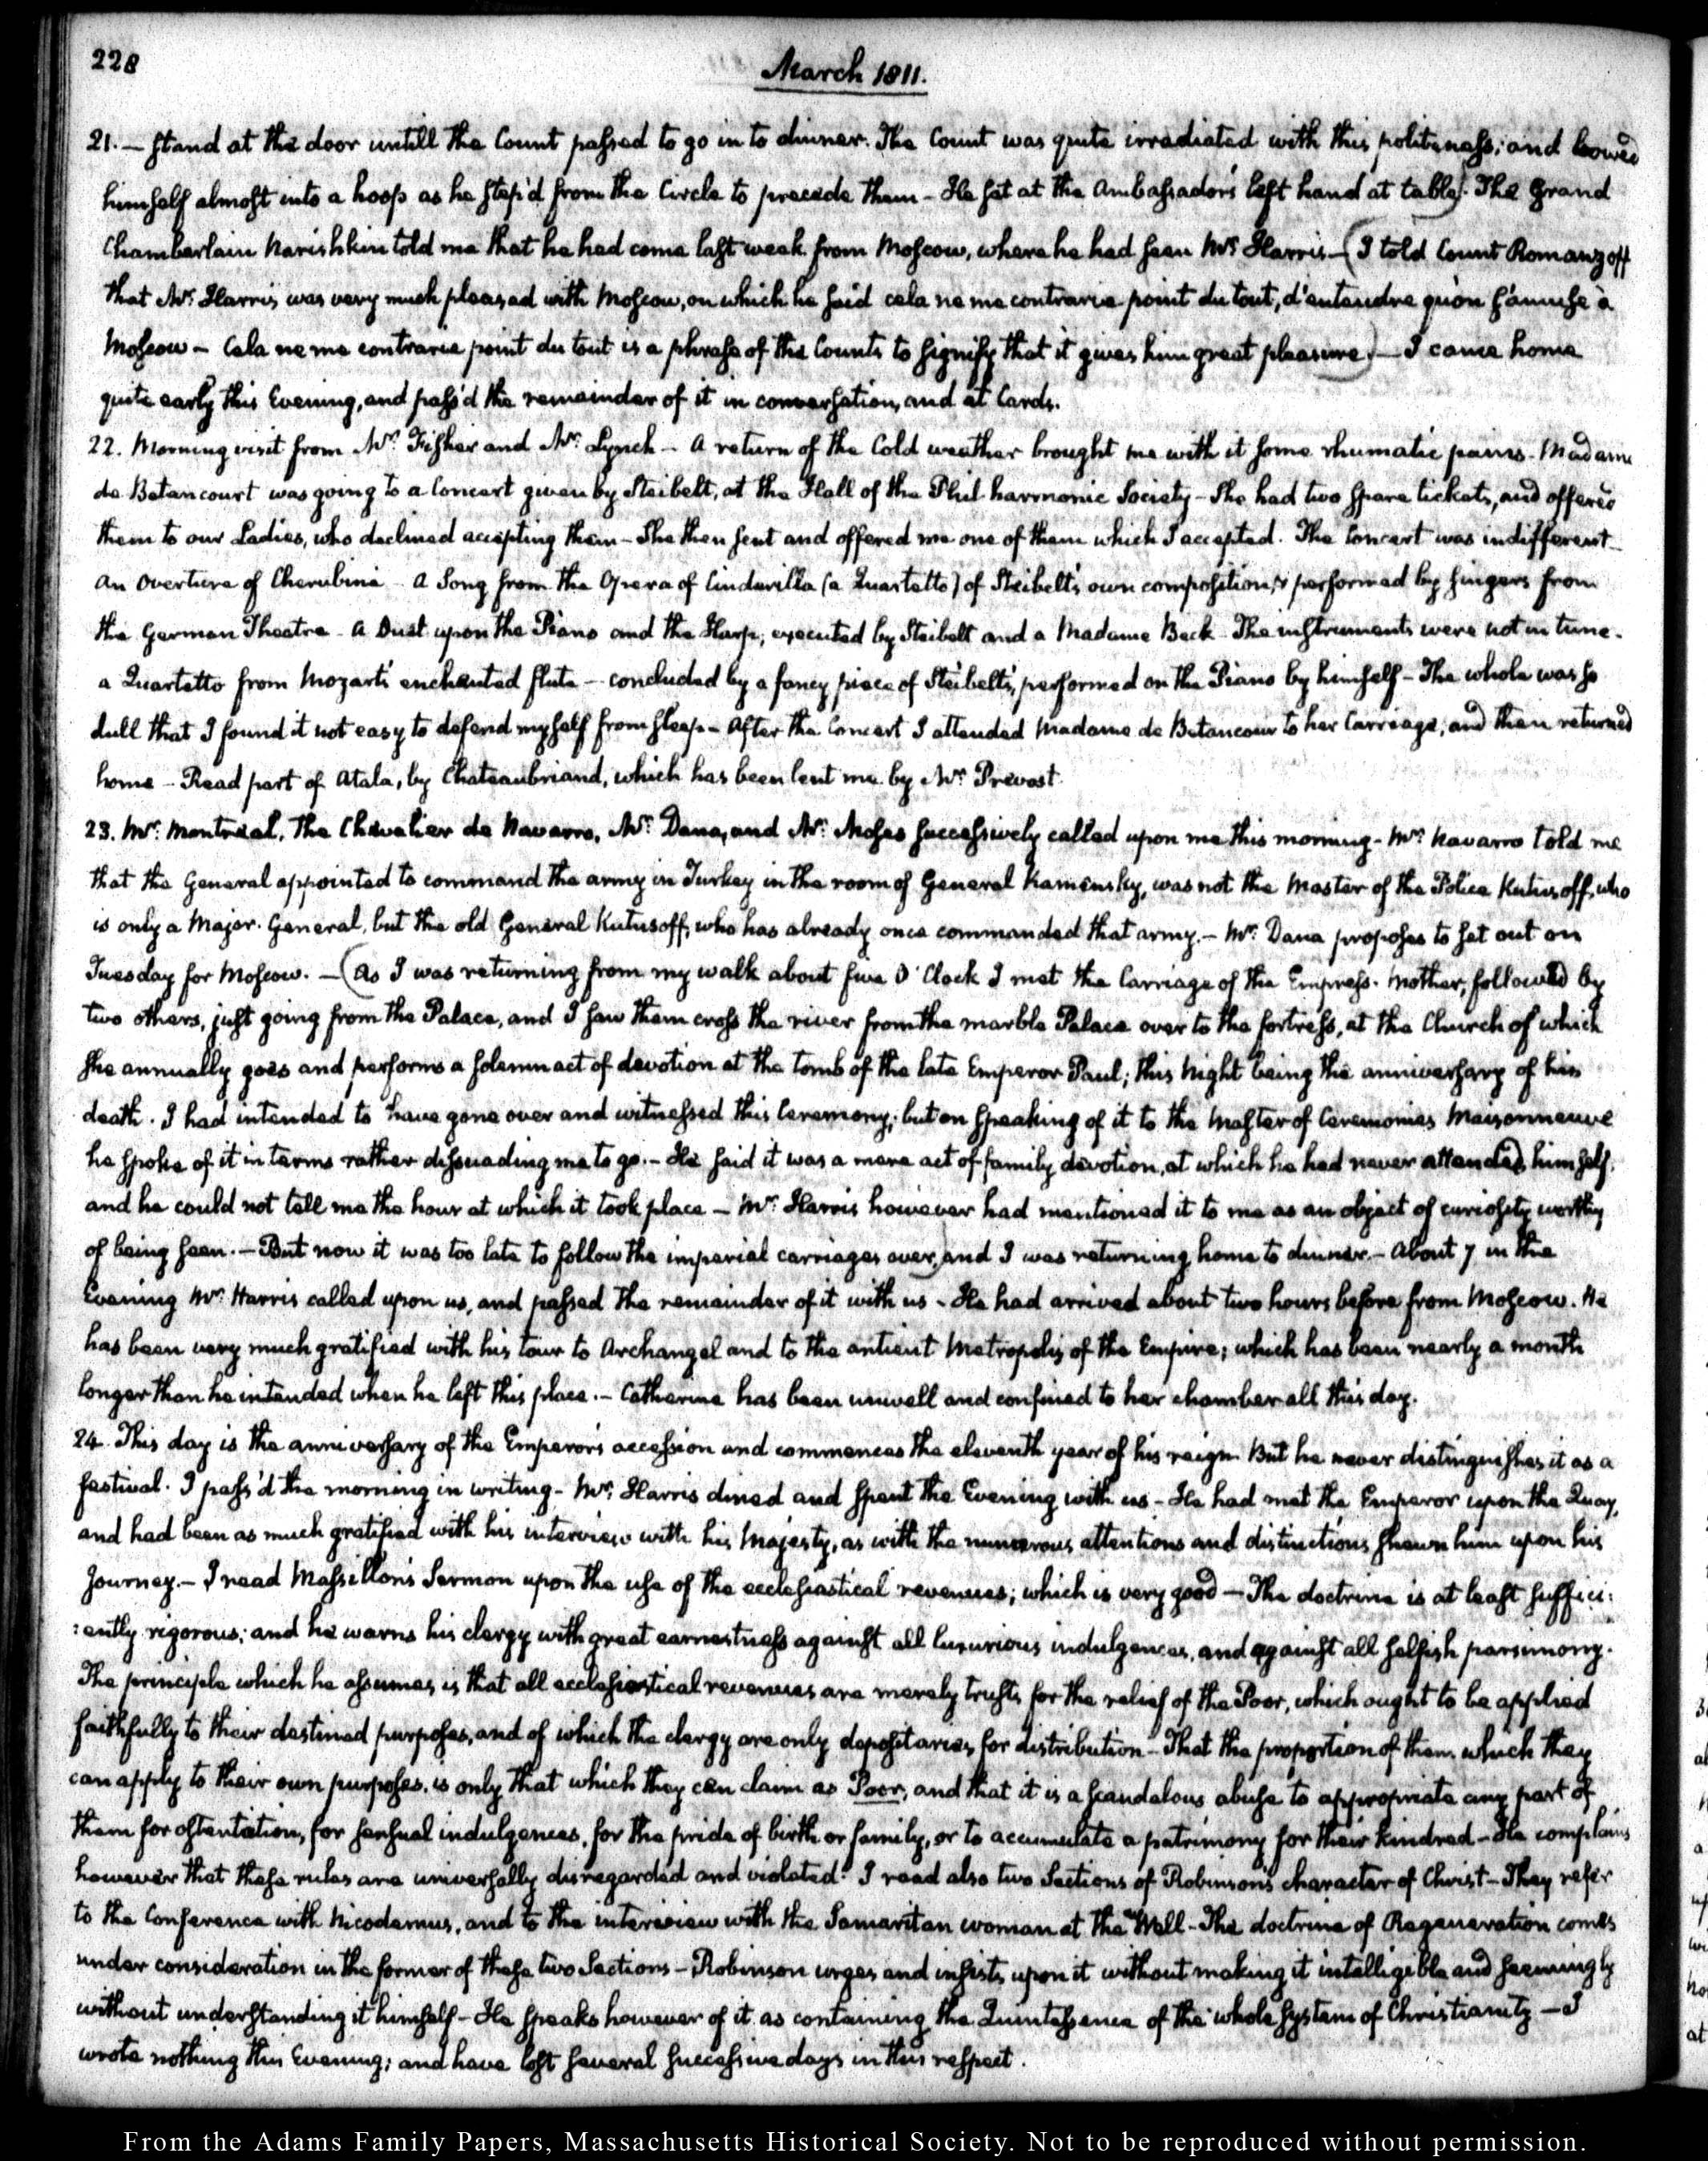 228
March 1811.
21. — stand at the door untill the Count passed to go in to dinner. The Count was quite irradiated with this politeness; and bowed
himself almost into a hoop as he step'd from the Circle to precede them — He sat at the Ambassador's left hand at table). The Grand
Chamberlain Narishkin told me that he had come last week from Moscow, where he had seen Mr. Harris — (I told Count Romanzoff
that Mr. Harris was very much pleased with Moscow, on which he said cela ne me contrarie point du tout, d'entendre qu'on s'amuse à
Moscow — Cela ne me contrarie point du tout is a phrase of the Count's to signify that it gives him great pleasure) — I came home
quite early this Evening, and pass'd the remainder of it in conversation, and at Cards.
22. Morning visit from Mr. Fisher and Mr. Lynch — A return of the Cold weather brought me with it some rhumatic pains — Madame
de Betancourt was going to a Concert given by Steibelt, at the Hall of the Philharmonic Society — She had two spare tickets, and offered
them to our Ladies, who declined accepting them — She then sent and offered me one of them which I accepted. The Concert was indifferent —
an Overture of Cherubini — A Song from the Opera of Cinderilla (a Quartetto) of Steibelt's own composition, & performed by singers from
the German Theatre — A Duet upon the Piano and the Harp, executed by Steibelt and a Madame Beck — The instruments were not in tune.
a Quartetto from Mozart's enchanted flute — concluded by a fancy piece of Steibelt's, performed on the Piano by himself — The whole was so
dull that I found it not easy to defend myself from sleep — After the Concert I attended Madame de Betancour to her Carriage, and then returned
home — Read part of Atala, by Chateaubriand, which has been lent me by Mr. Prevost.
23. Mr. Montréal, The Chevalier de Navarro, Mr. Dana, and Mr. Moses successively called upon me this morning — Mr. Navarro told me
that the General appointed to command the army in Turkey in the room of General Kamensky, was not the Master of the Police Kutusoff, who
is only a Major-General, but the old General Kutusoff, who has already once commanded that army. — Mr. Dana proposes to set out on
Tuesday for Moscow. — (As I was returning from my walk about five O'Clock I met the Carriage of the Empress-Mother, followed by
two others, just going from the Palace, and I saw them cross the river from the marble Palace over to the fortress, at the Church of which
she annually goes and performs a solemn act of devotion at the tomb of the late Emperor Paul; this Night being the anniversary of his
death. I had intended to have gone over and witnessed this Ceremony; but on speaking of it to the Master of Ceremonies Maisonneuve
he spoke of it in terms rather dissuading me to go. — He said it was a mere act of family devotion, at which he had never attended himself,
and he could not tell me the hour at which it took place — Mr. Harris however had mentioned it to me as an object of curiosity worthy
of being seen. — But now it was too late to follow the imperial carriages over, and I was returning home to dinner. — About 7 in the
Evening Mr. Harris called upon us, and passed the remainder of it with us — He had arrived about two hours before from Moscow. He
has been very much gratified with his tour to Archangel and to the antient Metropolis of the Empire; which has been nearly a month
longer than he intended when he left this place. — Catherine has been unwell and confined to her chamber all this day.
24. This day is the anniversary of the Emperor's accession and commences the eleventh year of his reign. But he never distinguishes it as a
festival. I pass'd the morning in writing — Mr. Harris dined and spent the Evening with us — He had met the Emperor upon the Quay,
and had been as much gratified with his interview with his Majesty, as with the numerous attentions and distinctions shewn him upon his
Journey. — I read Massillon's Sermon upon the use of the ecclesiastical revenues; which is very good — The doctrine is at least suffici:
:ently rigorous; and he warns his clergy with great earnestness against all luxurious indulgences, and against all selfish parsimony.
The principle which he assumes is that all ecclesiastical revenues are merely trusts for the relief of the Poor, which ought to be applied
faithfully to their destined purposes, and of which the clergy are only depositaries for distribution — That the proportion of them which they
can apply to their own purposes, is only that which they can claim as Poor, and that it is a scandalous abuse to appropriate any part of
them for ostentation, for sensual indulgences, for the pride of birth or family, or to accumulate a patrimony for their kindred — He complains
however that these rules are universally disregarded and violated. I read also two Sections of Robinson's character of Christ — They refer
to the Conference with Nicodemus, and to the interview with the Samaritan woman at the Well — The doctrine of Regeneration comes
under consideration in the former of these two Sections — Robinson urges and insists upon it without making it intelligible and seemingly
without understanding it himself — He speaks however of it as containing the Quintessence of the whole System of Christianity — I
wrote nothing this Evening; and have lost several successive days in this respect.
From the Adams Family Papers, Massachusetts Historical Society. Not to be reproduced without permission.